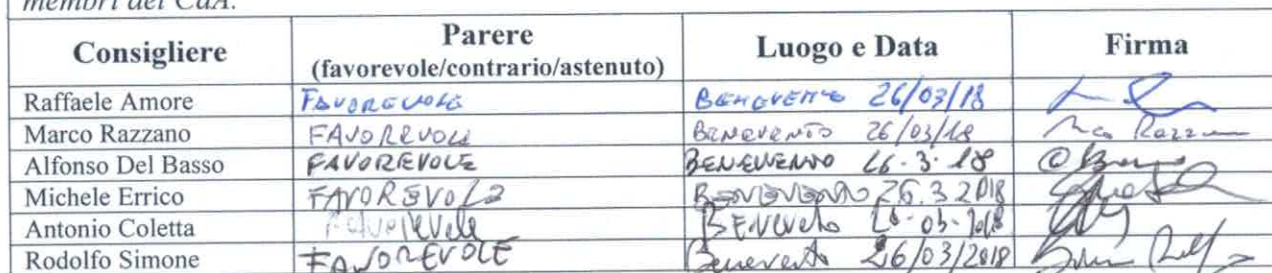 membri del CdA.
Consigliere Parere (favorevole/contrario/astenuto) Luogo e Data Firma
Raffaele Amore FAVOREVOLE BENEVENTO 26/03/18
Marco Razzano FAVOREVOLE BENEVENTO 26/03/18 Razzano
Alfonso Del Basso FAVOREVOLE BENEVENTO 26.3.18
Michele Errico FAVOREVOLE BENEVENTO 26.3 2018
Antonio Coletta Favorevole BENEVENTO 26-03-2018
Rodolfo Simone FAVOREVOLE Benevento 26/03/2018